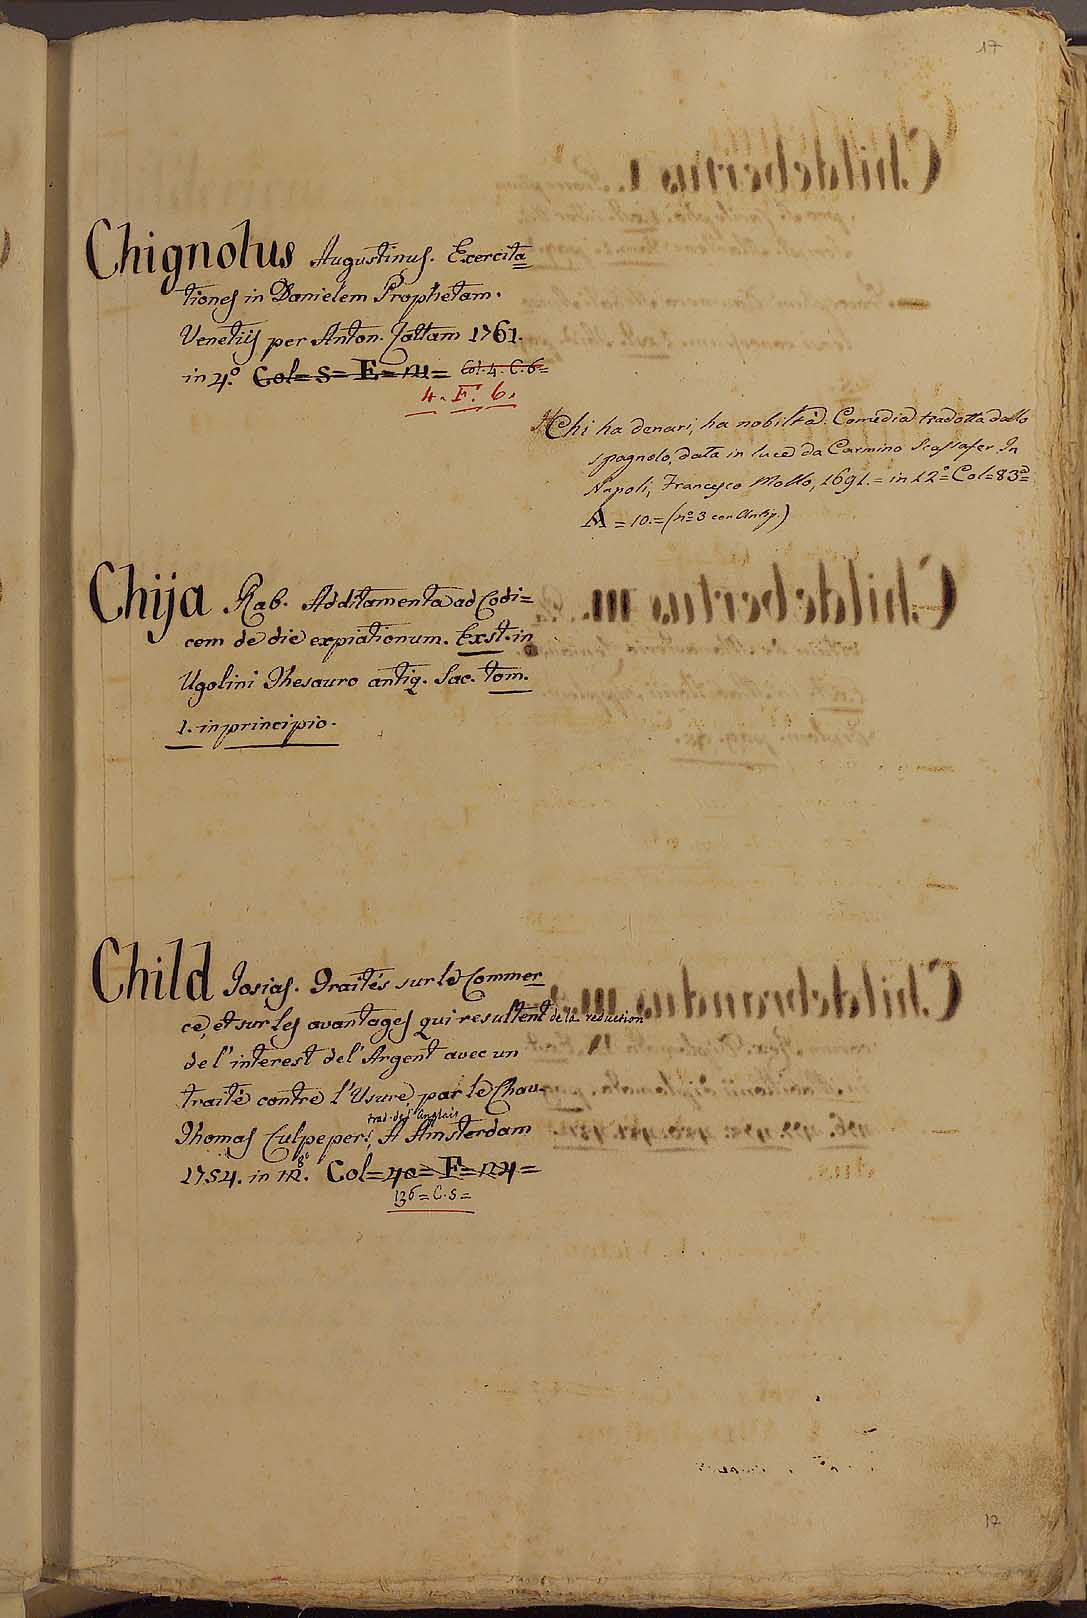 17
Chignolus Augustinus. Exercita=
tiones in Danielem Prophetam.
Venetijs per Anton. Zattam 1761.
in 4.º Col=S=E=111= Col. 4. C. 6=
4. F. 6.
Chi ha denari, ha nobiltà. Comedia tradotta dallo
spagnolo, data in luce da Carmino Scassafer. In
Napoli, Francesco Mollo, 1691.= in 12º= Col=83=
A = 10.= (nº 3 con Antip.)
Chija Rab. Additamenta ad Codi=
cem de die expiationum. Exst. in
Ugolini Thesauro antiq. Sac. tom.
1. in principio.
Child Josias. Traités sur le Commer
ce, et sur les avantages qui resultent de la reduction
de l'interest de l'Argent avec un
traité contre l'Usure, par le Chav.
trad. de l'Anglais
Thomas Culpeper, A Amsterdam
1754. in 12. 8º Col=40=F=24=
136=C.5=
17